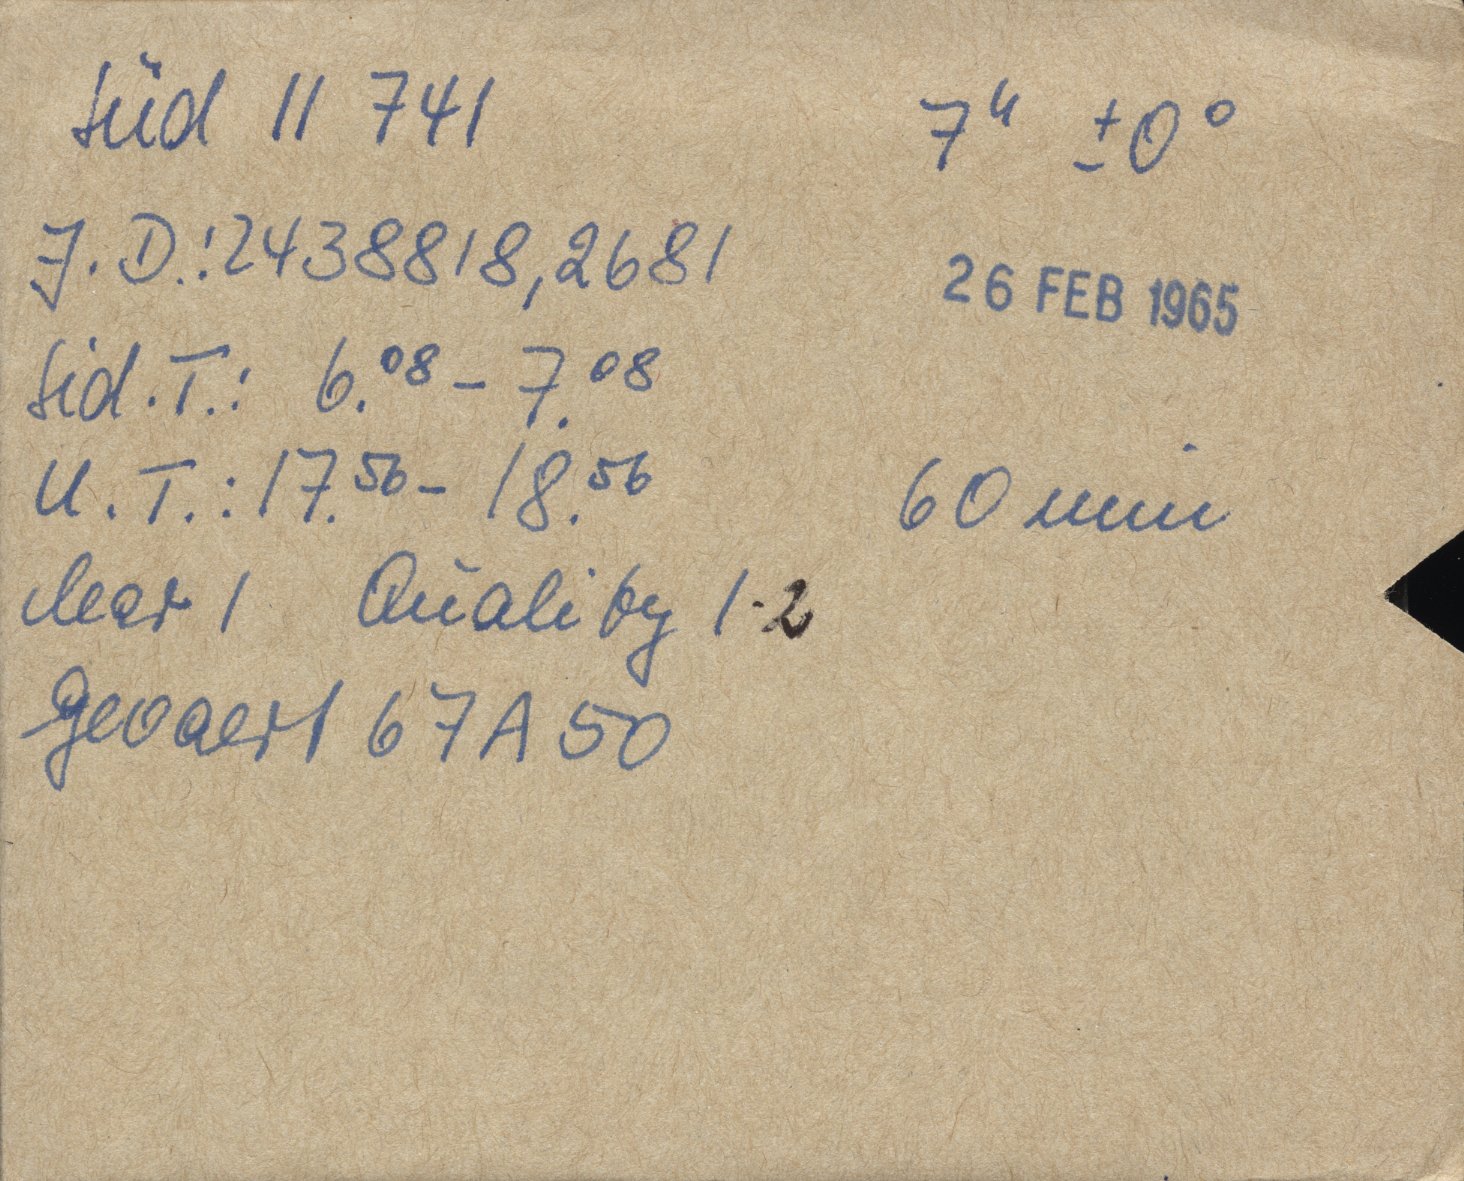 Süd 11 741 7ʰ ±0°
J.D.: 2438818,2681
26 FEB 1965
Sid.T.: 6.⁰⁸ – 7.⁰⁸
U.T.: 17.⁵⁶ – 18.⁵⁶ 60 min
clear 1 Quality 1-2
Gevaert 67A50